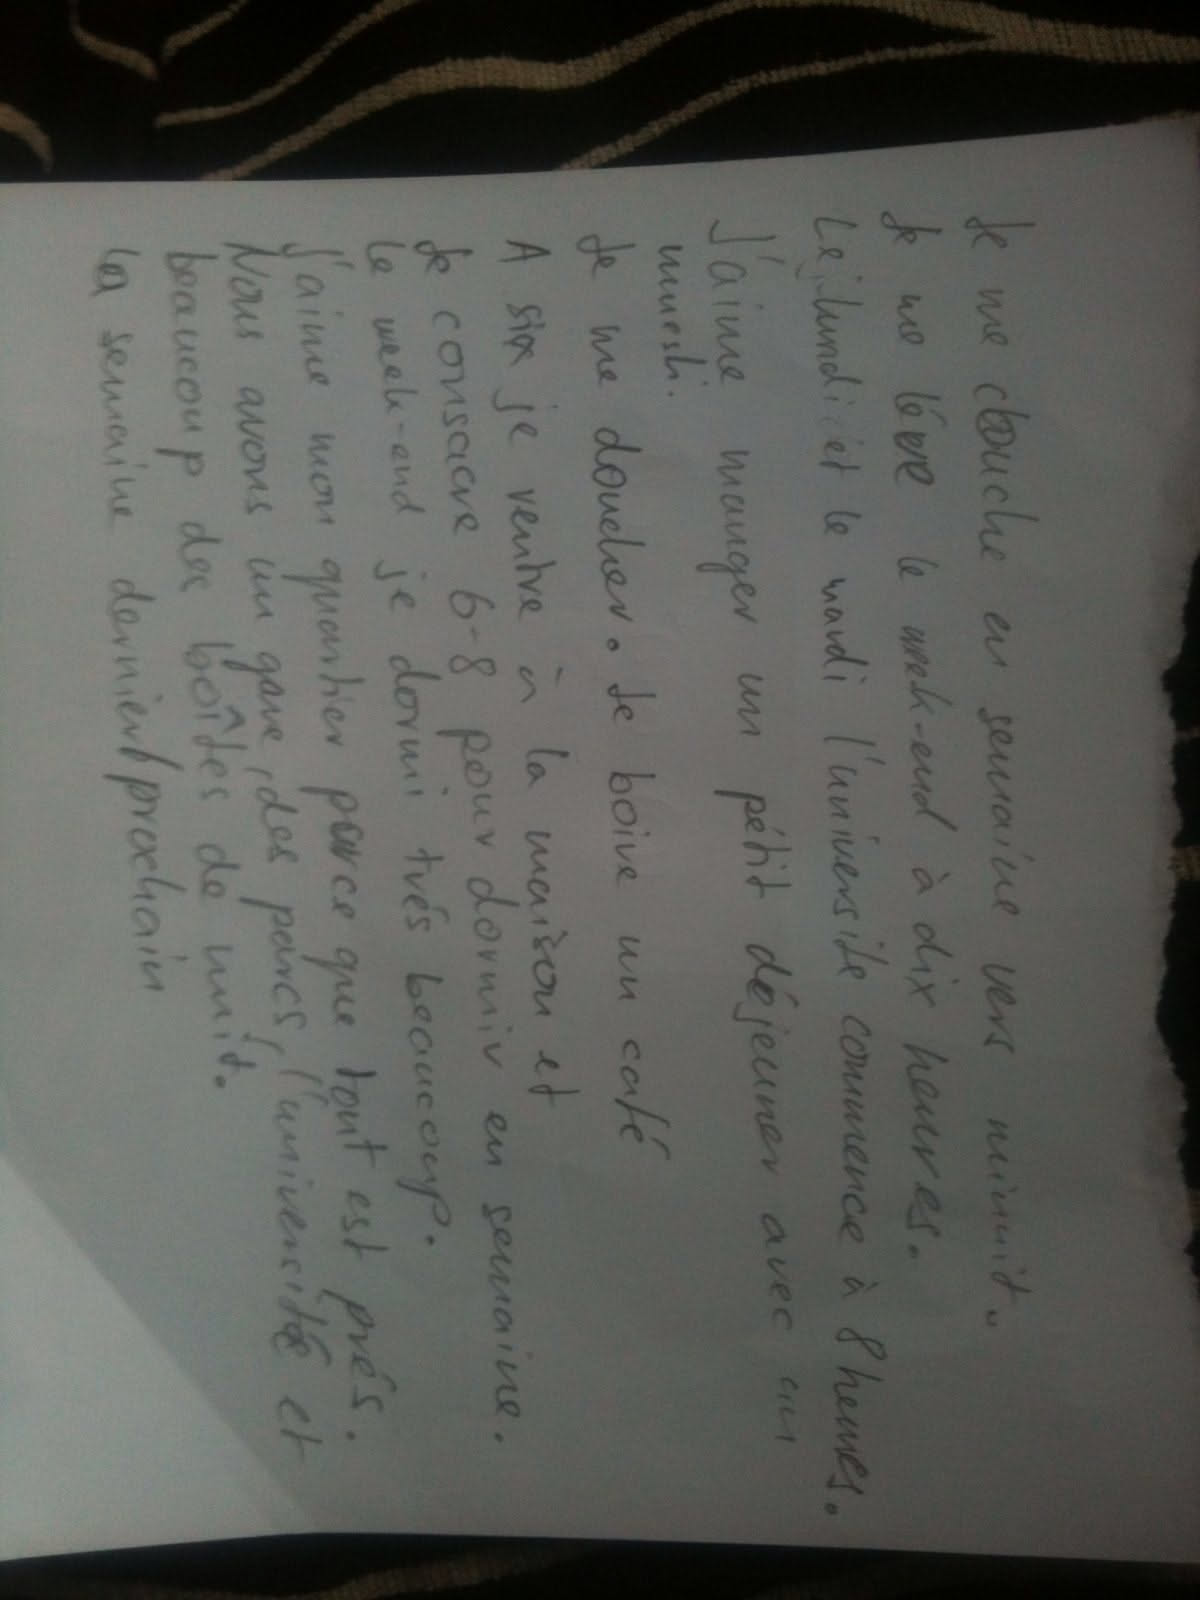 Je me couche en semaine vers minuit.
Je me léve le week-end à dix heures.
Le lundi et le mardi l'université commence à 8 heures.
J'aime manger un pétit déjeuner avec un
muesli.
Je me doucher. Je boive un café
A six je rentre à la maison et
Je consacre 6-8 pour dormir en semaine.
Le week-end je dormi trés beaucoup.
J'aime mon quartier parce que tout est prés.
Nous avons un gare, des parcs, l'université et
beaucoup des boîtes de nuit.
la semaine dernier/prochain